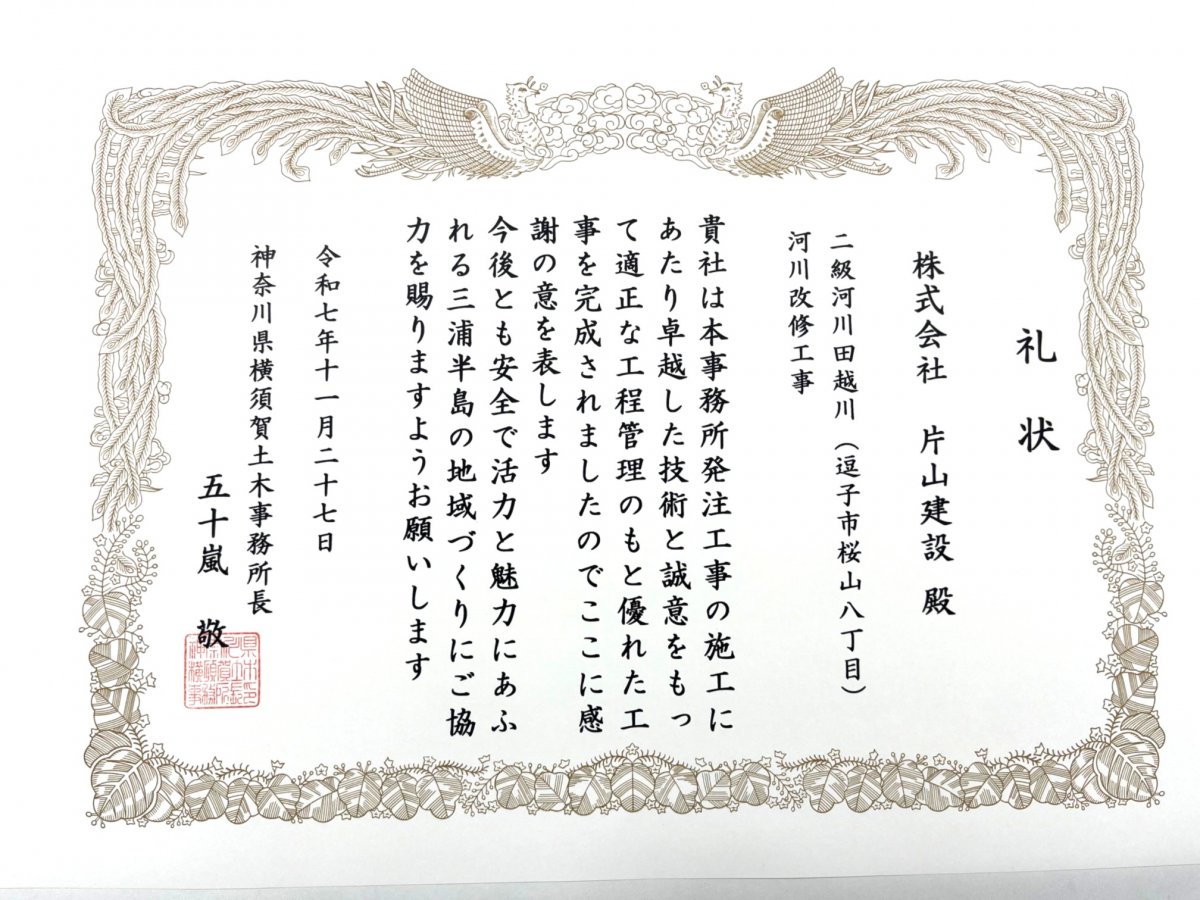 礼状
株式会社 片山建設 殿
二級河川田越川（逗子市桜山八丁目）
河川改修工事
貴社は本事務所発注工事の施工に
あたり卓越した技術と誠意をもっ
て適正な工程管理のもと優れた工
事を完成されましたのでここに感
謝の意を表します
今後とも安全で活力と魅力にあふ
れる三浦半島の地域づくりにご協
力を賜りますようお願いします
令和七年十一月二十七日
神奈川県横須賀土木事務所長
五十嵐 敬